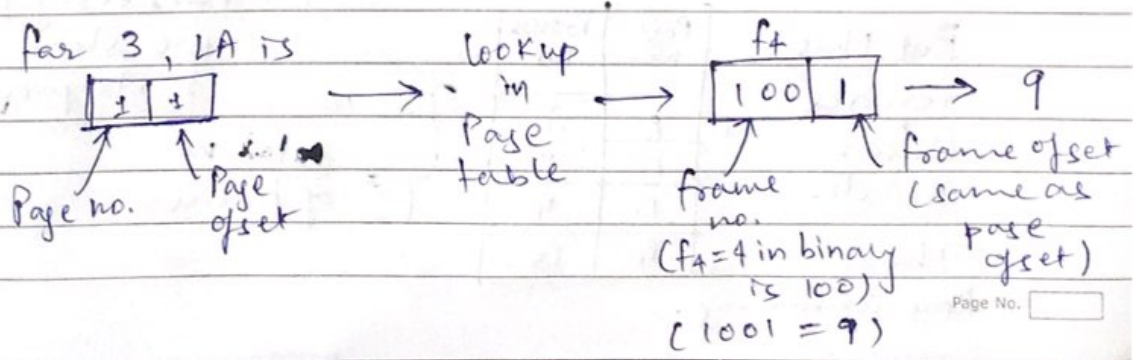 far 3, LA is
1 1
Page no.
Page
ofset
lookup
in
Page
table
f4
100 1
9
frame
no.
(f4=4 in binary
is 100)
(1001 = 9)
frame ofset
(same as
page
ofset)
Page No.